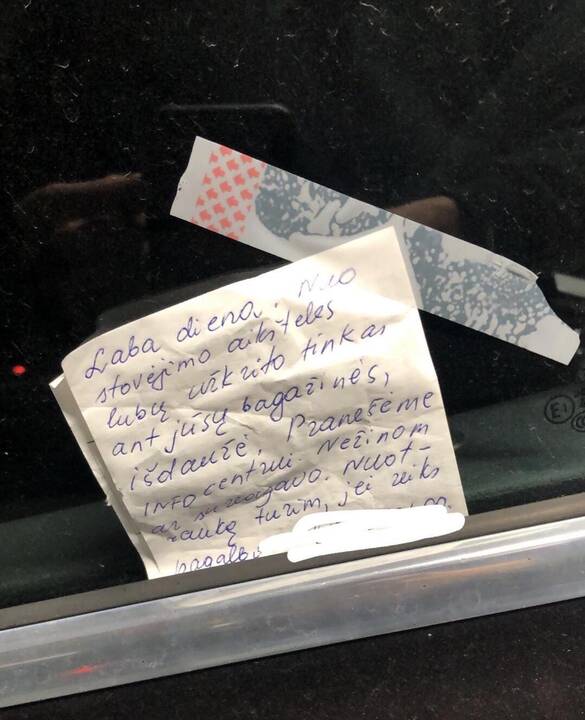 Laba diena. Nuo
stovėjimo aikštelės
lubų užkrito tinkas
ant jūsų bagažinės,
išdaužė. Pranešėme
INFO centrui. Nežinom
ar sureagavo. Nuot-
rauką turim, jei reiks
pagalbos
E1